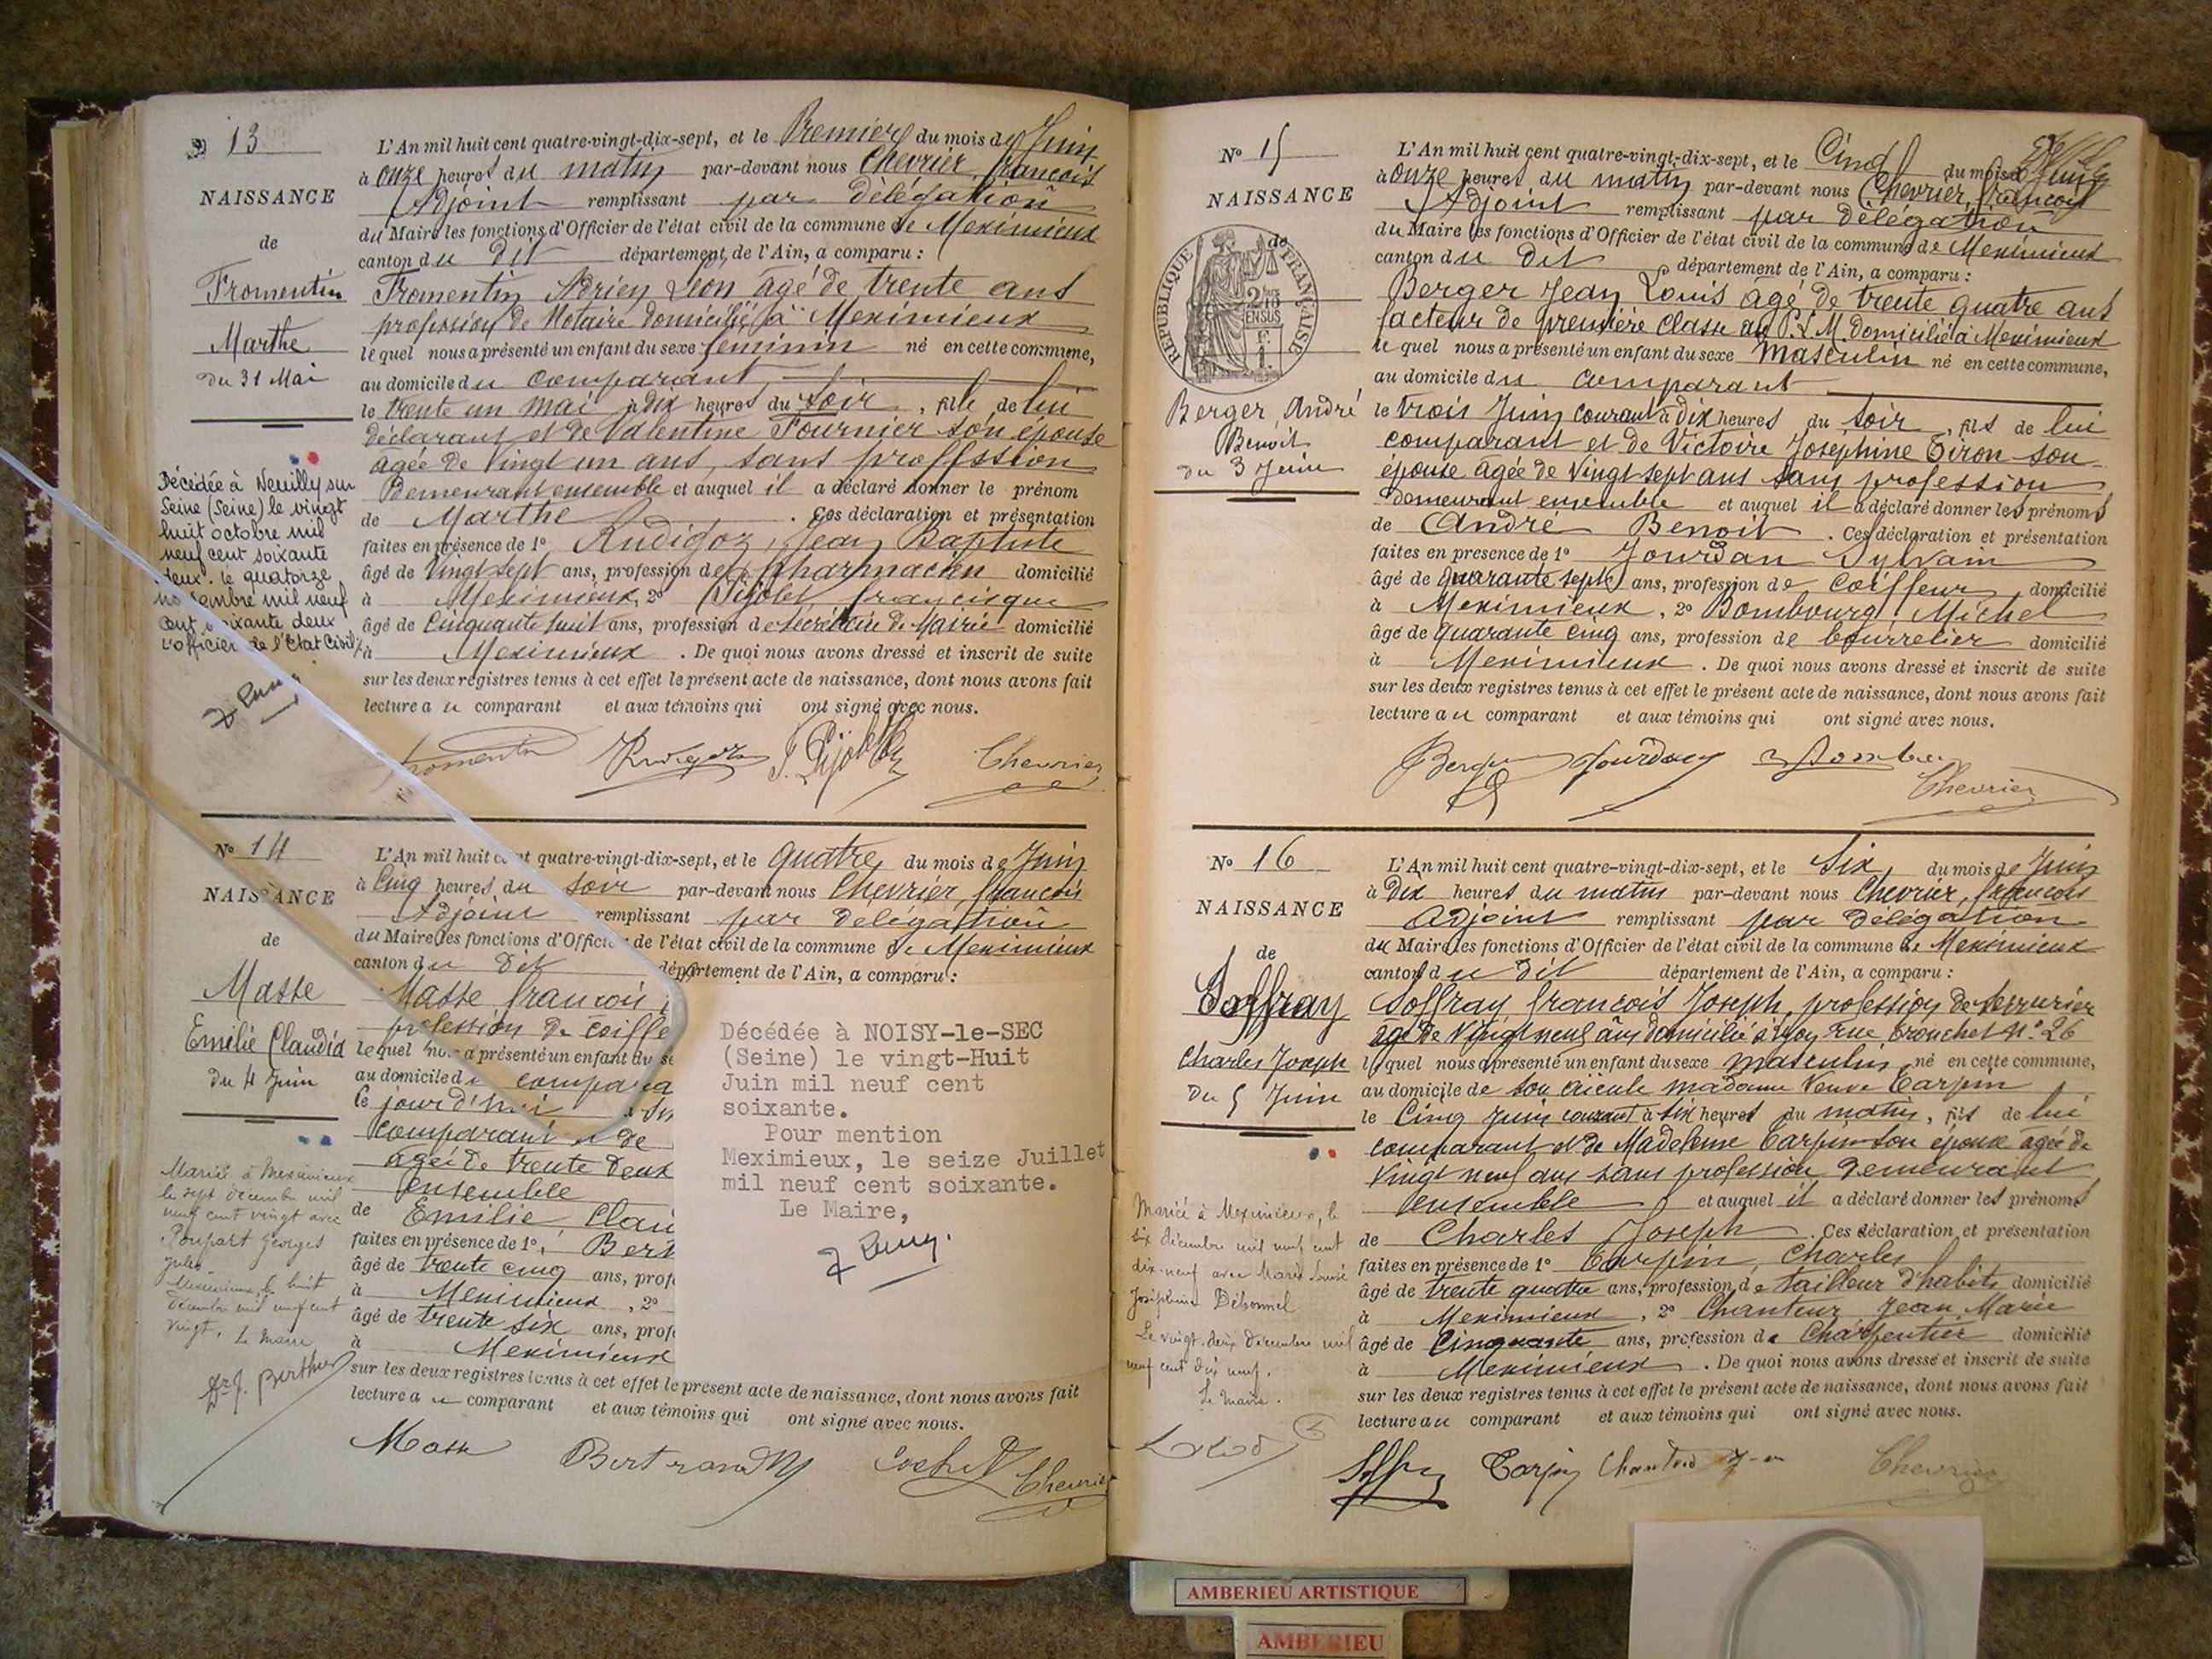 N° 13
NAISSANCE
de
Fromentin
Marthe
du 31 Mai
L'An mil huit cent quatre-vingt-dix-sept, et le Premier du mois de Juin
à onze heures du matin par-devant nous Chevrier, françois
Adjoint remplissant par délégation
du Maire les fonctions d'Officier de l'état civil de la commune de Meximieux
canton du dit département de l'Ain, a comparu :
Fromentin Adrien Léon âgé de trente ans
profession de Notaire domicilié à Meximieux
lequel nous a présenté un enfant du sexe feminin né en cette commune,
au domicile du comparant
le trente un mai à dix heures du soir, fille de lui
déclarant et de Valentine Fournier son épouse
âgée de Vingt un ans, sans profession
Demeurant ensemble et auquel il a déclaré donner le prénom
de Marthe. Ces déclaration et présentation
faites en présence de 1° Rudigoz, Jean Baptiste
âgé de Vingt sept ans, profession de Pharmacien domicilié
à Meximieux, 2° francisque
âgé de Cinquante huit ans, profession de secrétaire de Mairie domicilié
à Meximieux. De quoi nous avons dressé et inscrit de suite
sur les deux registres tenus à cet effet le présent acte de naissance, dont nous avons fait
lecture au comparant et aux témoins qui ont signé avec nous.
Décédée à Neuilly sur
Seine (Seine) le vingt
huit octobre mil
neuf cent soixante
deux. le quatorze
novembre mil neuf
cent soixante deux
L'officier de l'Etat Civil
Fromentin Rudigoz Chevrier
N° 14
NAISSANCE
de
Masse
Emilie Claudia
du 4 Juin
L'An mil huit cent quatre-vingt-dix-sept, et le quatre du mois de Juin
à Cinq heures du soir par-devant nous Chevrier, françois
Adjoint remplissant par délégation
du Maire les fonctions d'Officier de l'état civil de la commune de Meximieux
canton du dit département de l'Ain, a comparu :
Masse françois
profession de coiffe
lequel nous a présenté un enfant du se
au domicile du compara
le jour d'hui à
comparant et de
agée de trente deux
ensemble
de Emilie Clau
faites en présence de 1°, Bert
âgé de trente cinq ans, prof
à Meximieux, 2°
âgé de trente six ans, prof
à Meximieux
sur les deux registres tenus à cet effet le présent acte de naissance, dont nous avons fait
lecture au comparant et aux témoins qui ont signé avec nous.
Décédée à NOISY-le-SEC
(Seine) le vingt-Huit
Juin mil neuf cent
soixante.
Pour mention
Meximieux, le seize Juillet
mil neuf cent soixante.
Le Maire,
Mariée à Meximieux
le sept décembre mil
neuf cent vingt avec
Poupart Georges
Jules
Meximieux le huit
décembre mil neuf cent
vingt. Le Maire
Dr J. Berthier
Masse Bertrand Cochet Chevrier
N° 15
NAISSANCE
de
RÉPUBLIQUE FRANÇAISE
Berger, André
Benoit
du 3 Juin
L'An mil huit cent quatre-vingt-dix-sept, et le Cinq du mois de Juin
à onze heures du matin par-devant nous Chevrier, françois
Adjoint remplissant par délégation
du Maire les fonctions d'Officier de l'état civil de la commune de Meximieux
canton du dit département de l'Ain, a comparu :
Berger Jean Louis âgé de trente quatre ans
facteur de première classe au P.L.M. domicilié à Meximieux
lequel nous a présenté un enfant du sexe Masculin né en cette commune,
au domicile du comparant
le trois Juin courant à dix heures du soir, fils de lui
comparant et de Victoire Joséphine Tiron son
épouse âgée de Vingt sept ans sans profession
demeurant ensemble et auquel il a déclaré donner les prénoms
de André Benoit. Ces déclaration et présentation
faites en présence de 1° Jourdan Sylvain
âgé de quarante sept ans, profession de Coiffeur domicilié
à Meximieux, 2° Bombourg Michel
âgé de quarante cinq ans, profession de bourrelier domicilié
à Meximieux. De quoi nous avons dressé et inscrit de suite
sur les deux registres tenus à cet effet le présent acte de naissance, dont nous avons fait
lecture au comparant et aux témoins qui ont signé avec nous.
Berger Jourdan Chevrier
N° 16
NAISSANCE
de
Soffray
Charles Joseph
Du 5 Juin
L'An mil huit cent quatre-vingt-dix-sept, et le Six du mois de Juin
à Dix heures du matin par-devant nous Chevrier, françois
Adjoint remplissant par délégation
du Maire les fonctions d'Officier de l'état civil de la commune de Meximieux
canton du dit département de l'Ain, a comparu :
Soffray françois Joseph, profession de serrurier
âgé de Vingt neuf ans domicilié à Lyon rue Tronchet N° 26
lequel nous a présenté un enfant du sexe masculin né en cette commune,
au domicile de son aieule madame Veuve Carpin
le Cinq Juin courant à six heures du matin, fils de lui
comparant et de Madeleine Carpin son épouse agée de
Vingt neuf ans sans profession Demeurant
ensemble et auquel il a déclaré donner les prénoms
de Charles Joseph. Ces déclaration et présentation
faites en présence de 1° Carpin Charles
âgé de trente quatre ans, profession de tailleur d'habits domicilié
à Meximieux, 2° Chanteur Jean Marie
âgé de Cinquante ans, profession de Charpentier domicilié
à Meximieux. De quoi nous avons dressé et inscrit de suite
sur les deux registres tenus à cet effet le présent acte de naissance, dont nous avons fait
lecture au comparant et aux témoins qui ont signé avec nous.
Marié à Meximieux, le
six décembre mil neuf cent
dix-neuf avec Marie Louise
Joséphine Débonnel
Le vingt-deux décembre mil
neuf cent dix neuf.
Le Maire.
Chevrier
AMBERIEU ARTISTIQUE
AMBERIEU